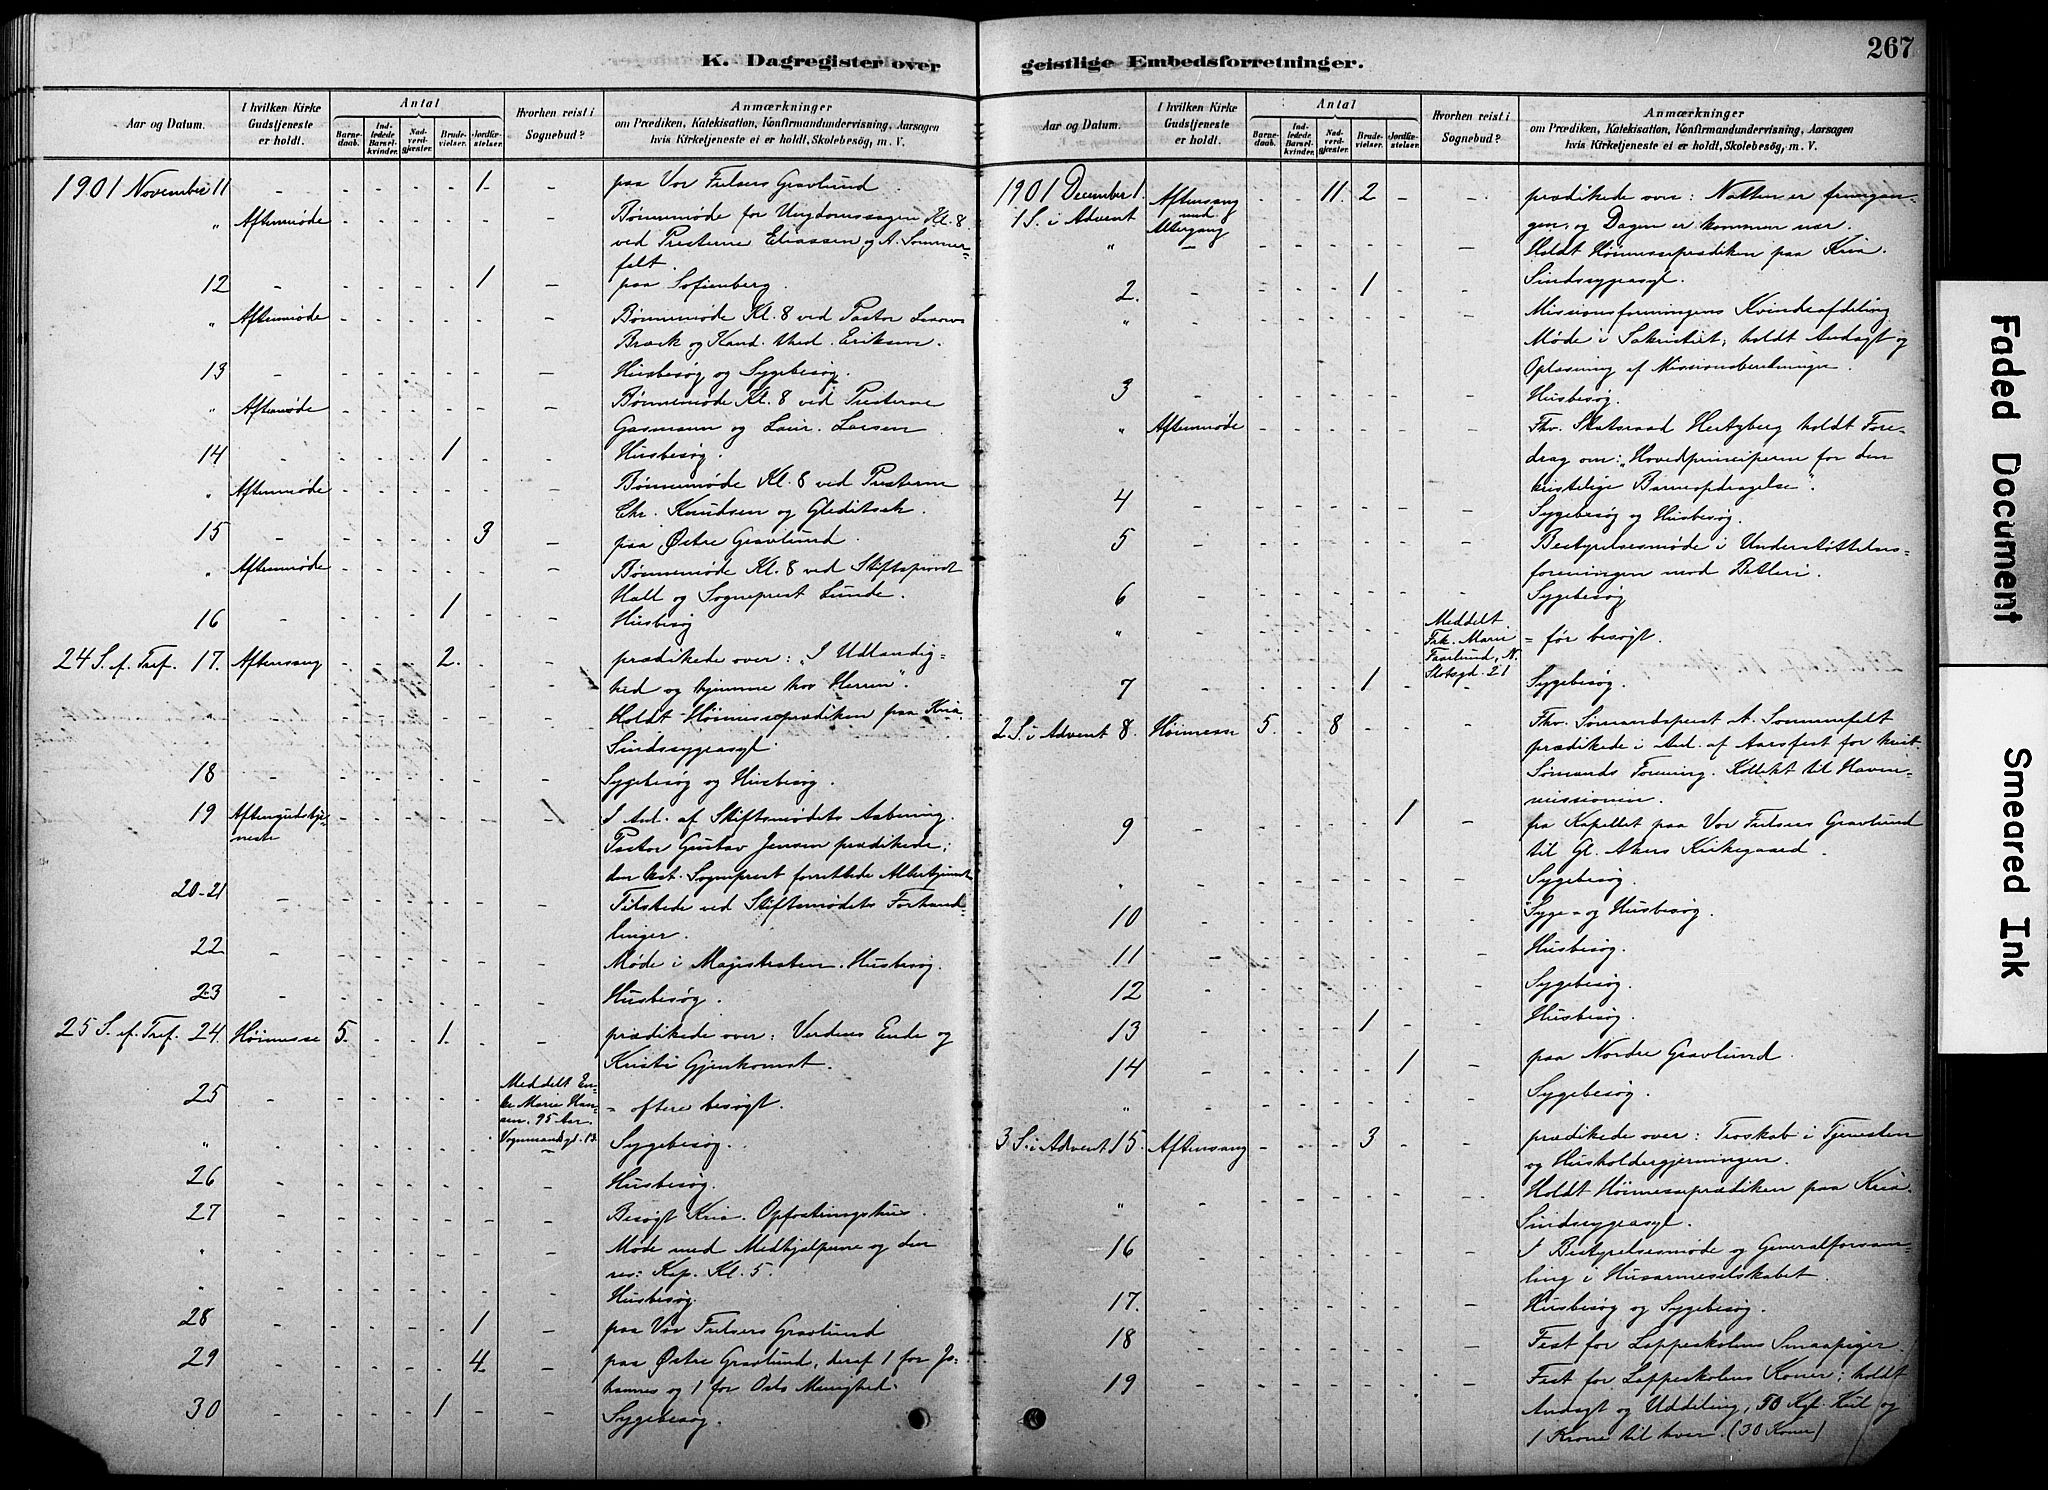 267
K. Dagregister over geistlige Embedsforretninger.
Aar og Datum.
I hvilken Kirke Gudstjeneste er holdt.
Antal
Barnedaab.
Indledede Barselkvinder.
Nadverdgjæster.
Brudevielser.
Jordfæstelser.
Hvorhen reist i Sognebud?
Anmærkninger
om Prædiken, Katekisation, Konfirmandundervisning, Aarsagen
hvis Kirketjeneste ei er holdt, Skolebesøg, m. V.
1901 November 11 - - - - - 1 - paa Vor Frelsers Gravlund
" Aftenmøde - - - - - - Bønnemøde for Ungdomssagen Kl. 8
ved Presterne Eliassen og A. Sommer=
felt.
12 - - - - - 1 - paa Sofienberg.
" Aftenmøde - - - - - - Bønnemøde Kl. 8 ved Pastor
og Kand. theol. Eriksen.
13 - - - - - - - Husbesøg og Sygebesøg.
" Aftenmøde - - - - - - Bønnemøde Kl. 8 ved Presterne
Gasmann og Laur. Larsen
14 - - - - 1 - - Husbesøg.
" Aftenmøde - - - - - - Bønnemøde Kl. 8 ved Presterne
Chr. Knudsen og Gleditsch.
15 - - - - - 3 - paa Østre Gravlund.
" Aftenmøde - - - - - - Bønnemøde Kl. 8 ved Stiftsprovst
Hall og Sogneprest Lunde.
16 - - - - 1 - - Husbesøg
24 S. ef. Tref. 17. Aftensang - - - 2. - - prædikede over: "I Udlændig=
hed og hjemme hos Herren".
" - - - - - - - Holdt Høimesseprædiken paa Kria.
Sindssygeasyl.
18 - - - - - - - Sygebesøg og Husbesøg.
19 Aftengudstje=
neste - - - - - - I Anl. af Stiftsmødets Aabning.
Pastor Gustav Jensen prædikede;
den kst. Sogneprest forrettede Altertjeneste
20-21 - - - - - - - Tilstede ved Stiftsmødets Forhand=
linger.
22 - - - - - - - Møde i Magistraten. Husbesøg.
23 - - - - - - - Husbesøg.
25 S. ef. Tref. 24. Høimesse 5. - - 1. - - prædikede over: Verdens Ende og
Kristi Gjenkomst.
25 - - - - - - Meddelt En=
ke Marie Han=
sen, 95 Aar,
Vognmandsgd. 13. = oftere besøgt.
" - - - - - - - Sygebesøg.
26 - - - - - - - Husbesøg.
27 - - - - - - - Besøgt Kria. Opfostringshus.
" - - - - - - - Møde med Medhjælperne og den
res: Kap. Kl. 5.
" - - - - - - - Husbesøg.
28 - - - - - 1 - paa Vor Frelsers Gravlund
29 - - - - - 4 - paa Østre Gravlund, deraf 1 for Jo=
hannes og 1 for Oslo Menighed.
30 - - - - 1 - - Sygebesøg.
Aar og Datum.
I hvilken Kirke Gudstjeneste er holdt.
Antal
Barnedaab.
Indledede Barselkvinder.
Nadverdgjæster.
Brudevielser.
Jordfæstelser.
Hvorhen reist i Sognebud?
Anmærkninger
om Prædiken, Katekisation, Konfirmandundervisning, Aarsagen
hvis Kirketjeneste ei er holdt, Skolebesøg, m. V.
1901 December 1.
1 S. i Advent Aftensang
med
Altergang - - 11. 2 - - prædikede over: Natten er fremgan=
gen, og Dagen er kommen nær.
" - - - - - - - Holdt Høimesseprædiken paa Kria.
Sindssygeasyl.
2. - - - - 1 - - Missionsforeningens Kvindeafdeling
" Møde i Sakristiet; holdt Andagt og
Oplæsning af Missionsberetninger.
3 - - - - - - - Husbesøg.
" Aftenmøde - - - - - - Fhv. Statsraad Hertzberg holdt Fore=
drag om: "Hovedprinciperne for den
kristelige Barneopdragelse".
4 - - - - - - - Sygebesøg og Husbesøg.
5 - - - - - - - Bestyrelsesmøde i Understøttelses=
foreningen mod Betleri.
6 - - - - - - - Sygebesøg
" - - - - - - Meddelt
Frk. Marie
Faarlund, N.
Slotsgd. 21 = før besøgt.
7 - - - - 1 - - Sygebesøg.
2 S. i Advent 8. Høimesse 5. - 8 - - - Fhv. Sømandsprest A. Sommerfelt
prædikede i Anl. af Aarsfest for
Sømands Forening. Kollekt til Havne=
missionen.
9 - - - - - 1 - fra Kapellet paa Vor Frelsers Gravlund
til Gl. Akers Kirkegaard.
" - - - - - - - Sygebesøg.
10 - - - - - - - Syge- og Husbesøg.
11 - - - - - - - Husbesøg.
12 - - - - - - - Sygebesøg.
13 - - - - 1 - - Husbesøg.
14 - - - - - 1 - paa Nordre Gravlund.
" - - - - - - - Sygebesøg.
3 S. i Advent 15. Aftensang - - - 3 - - prædikede over: Troskab i Tjenesten
og Husholdergjerningen.
" - - - - - - - Holdt Høimesseprædiken paa Kria.
Sindssygeasyl.
16 - - - - - - - I Bestyrelsesmøde og Generalforsam=
ling i Husarmeselskabet.
17. - - - - - - - Husbesøg og Sygebesøg.
18 - - - - - - - Fest for Lappeskolens Smaapiger.
19 - - - - - - - Fest for Lappeskolens Koner; holdt
Andagt og Uddeling, 50 Kgl. Kul og
1 Krone til hver. (30 Koner)
Faded Document
Smeared Ink